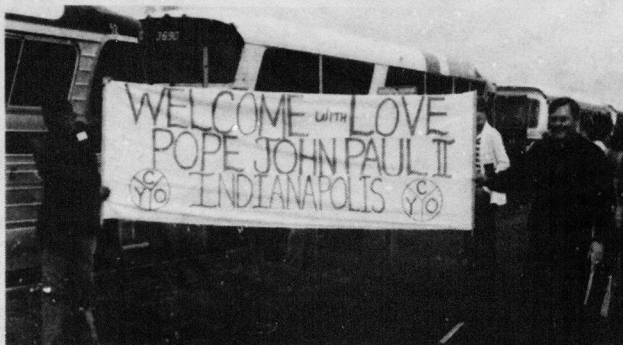 3690
WELCOME WITH LOVE
POPE JOHN PAUL II
INDIANAPOLIS
CYO
CYO